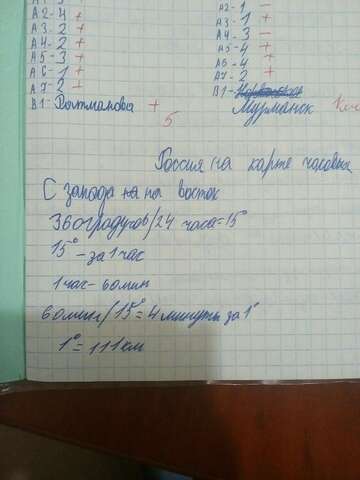 А2-4 +
А3-2 +
А4-2 +
А5-3 +
А6-1 +
А7-2 -
В1-Ратманова +
5
А2-1 -
А3-
А4-3 -
А5-4 +
А6-4 +
А7-2 +
В1-
Мурманск
Россия на карте часовых
С запада на восток
360градусов/24 часа=15°
15°-за 1 час
1 час-60мин
60мин/15°=4минуты за 1°
1°=111км